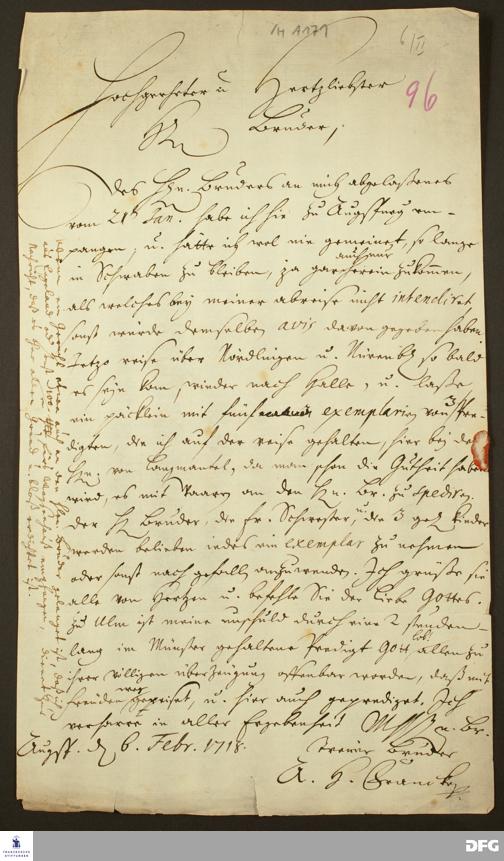 6/II
96
Hochgeehrter u Hertzliebster
Bruder,
Des Hn. Bruders an mich abgelaßenes
vom 21 Jan. habe ich hie zu Augspurg em-
pfangen, u. hätte ich wol nie gemeinet, so lange
in Schwaben zu bleiben, ja gar herein zukommen,
als welches bey meiner abreise nicht intendirt
sonst würde demselben avis davon gegeben haben
Jetzo reise über Nördlingen u. Nürnbg so bald
es seyn kan, wieder nach Halle, u. laße
ein päcklein mit fünf exemplarien von 3 Pre-
digten, die ich auf der reise gehalten, hier bei dem
Hn. von Langmantel, da man schon die Gutheit haben
wird, es mit Waaren an den Hn. Br. zu spediren.
Der H Bruder, die fr. Schwester, u die 3 Kinder
werden belieben iedes ein exemplar zu nehmen
oder sonst nach gefallen anzuwenden. Ich grüße sie
alle von Hertzen u. befehle Sie der Liebe Gottes.
Zu Ulm ist meine unschuld durch eine 2 stunden-
lang im Münster gehaltene Predigt Gott lob! allen zu
ihrer völligen überzeugung offenbar worden, daß mit
freuden weg gereiset, u. hier auch geprediget. Ich
verharre in aller Ergebenheit Mhhn. Br.
Augsp. d 6. Febr. 1718.
treuer Bruder
A. H. Francke
FRANCKESCHE STIFTUNGEN
DFG